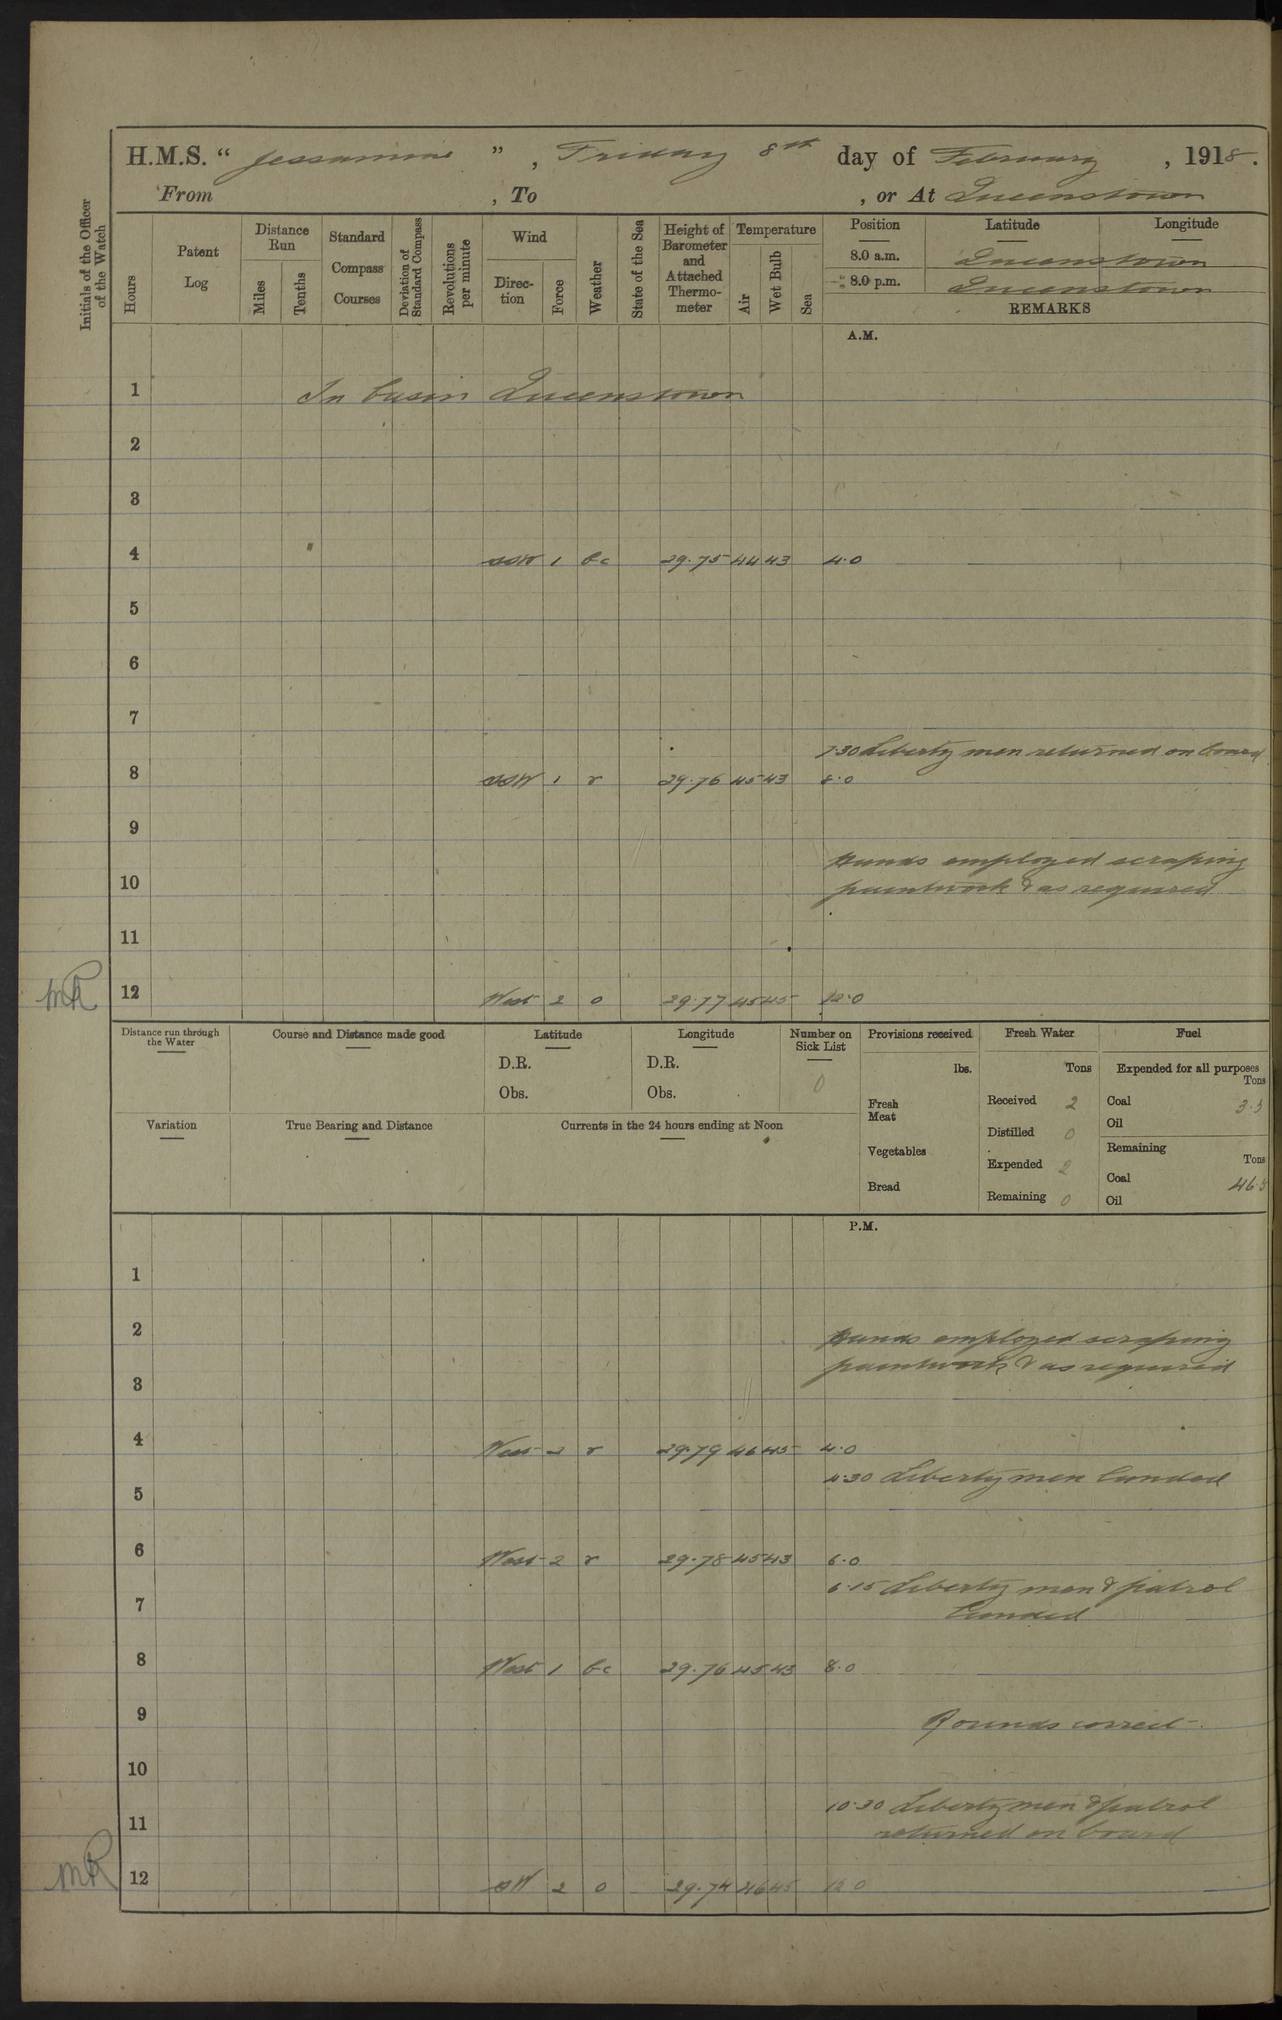 H.M.S. “ Jessamine ” , Friday 8th day of February , 1918.
From , To , or At Queenstown
Initials of the Officer of the Watch
Hours
Patent Log
Distance Run
Miles
Tenths
Standard Compass Courses
Deviation of Standard Compass
Revolutions per minute
Wind
Direction
Force
Weather
State of the Sea
Height of Barometer and Attached Thermometer
Temperature
Air
Wet Bulb
Sea
Position Latitude Longitude
8.0 a.m. Queenstown
8.0 p.m. Queenstown
REMARKS
A.M.
1 In basin Queenstown
2
3
4 SSW 1 bc 29.75 44 43 4.0
5
6
7
7.30 Liberty men returned on board
8 SSW 1 r 29.76 45 43 8.0
9
Hands employed scraping
10 paintwork & as required
11
MR 12 West 2 o 29.77 45 45 12.0
Distance run through the Water
Course and Distance made good
Latitude
D.R.
Obs.
Longitude
D.R.
Obs.
Number on Sick List
0
Provisions received
lbs.
Fresh Meat
Vegetables
Bread
Fresh Water
Tons
Received 2
Distilled 0
Expended 2
Remaining 0
Fuel
Expended for all purposes
Tons
Coal 3.5
Oil
Remaining
Tons
Coal 46.5
Oil
Variation
True Bearing and Distance
Currents in the 24 hours ending at Noon
P.M.
1
2 Hands employed scraping
paintwork & as required
3
4 West 2 r 29.79 46 45 4.0
4.30 Liberty men landed
5
6 West 2 r 29.78 45 43 6.0
6.15 Liberty men & patrol
7 landed
8 West 1 bc 29.76 45 43 8.0
9 Rounds correct.
10
10.30 Liberty men & patrol
11 returned on board
MR 12 SW 2 o 29.74 46 45 12.0